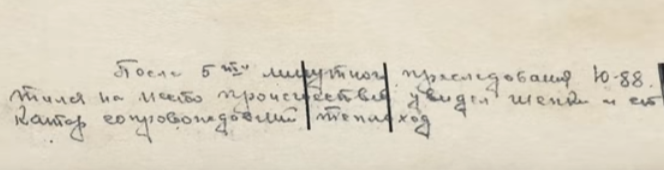 После 5ти минутног преследования Ю-88.
тился на место происшествия увидел щепки и
катер сопровождавший теплоход